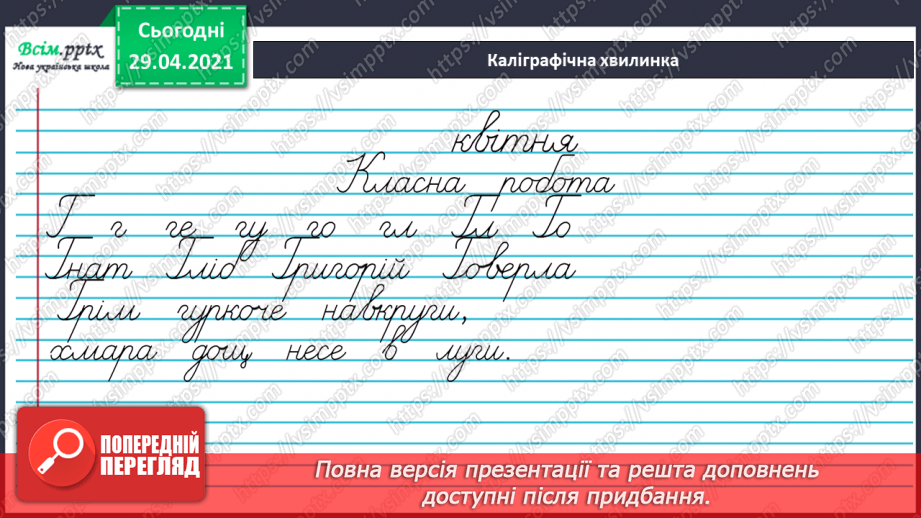 Всім.pptx
Нова українська школа
Сьогодні
29.04.2021
Каліграфічна хвилинка
квітня
Класна робота
Г г ге гу го гл Гл Го
Гнат Гліб Григорій Говерла
Грім гуркоче навкруги,
хмара дощ несе в луги.
ПОПЕРЕДНІЙ
ПЕРЕГЛЯД
Повна версія презентації та решта доповнень
доступні після придбання.
https://vsimpptx.com